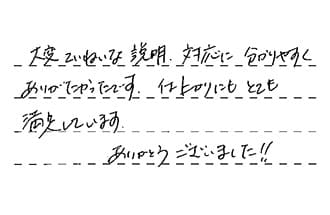 大変ていねいな説明、対応に分かりやすく
ありがたかったです。仕上がりにもとても
満足しています。
ありがとうございました!!